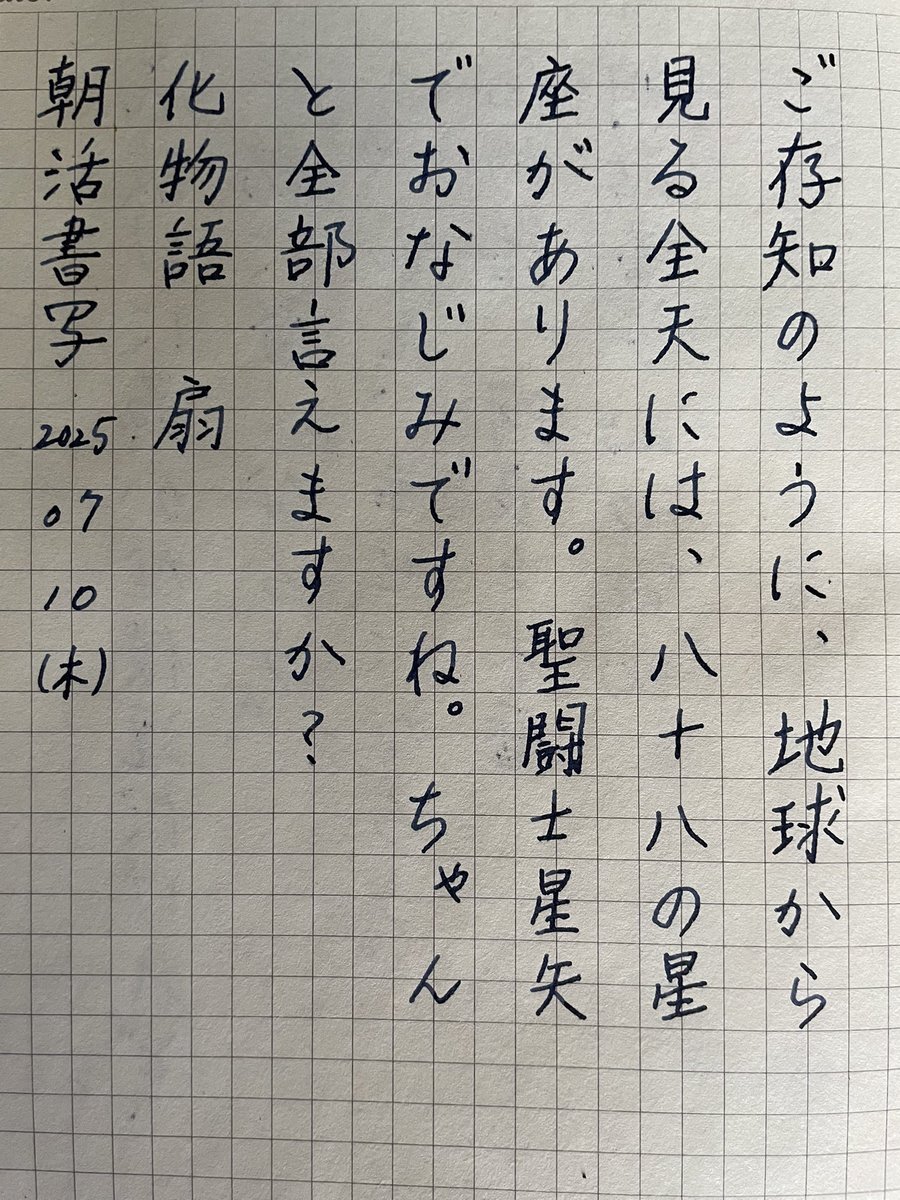 ご存知のように、地球から
見る全天には、八十八の星
座があります。聖闘士星矢
でおなじみですね。ちゃん
と全部言えますか?
化物語 扇
朝活書写 2025 07 10 (木)